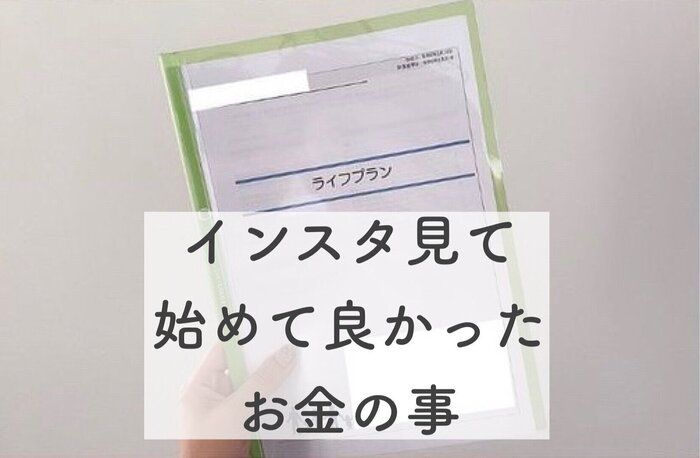 ライフプラン
インスタ見て
始めて良かった
お金の事